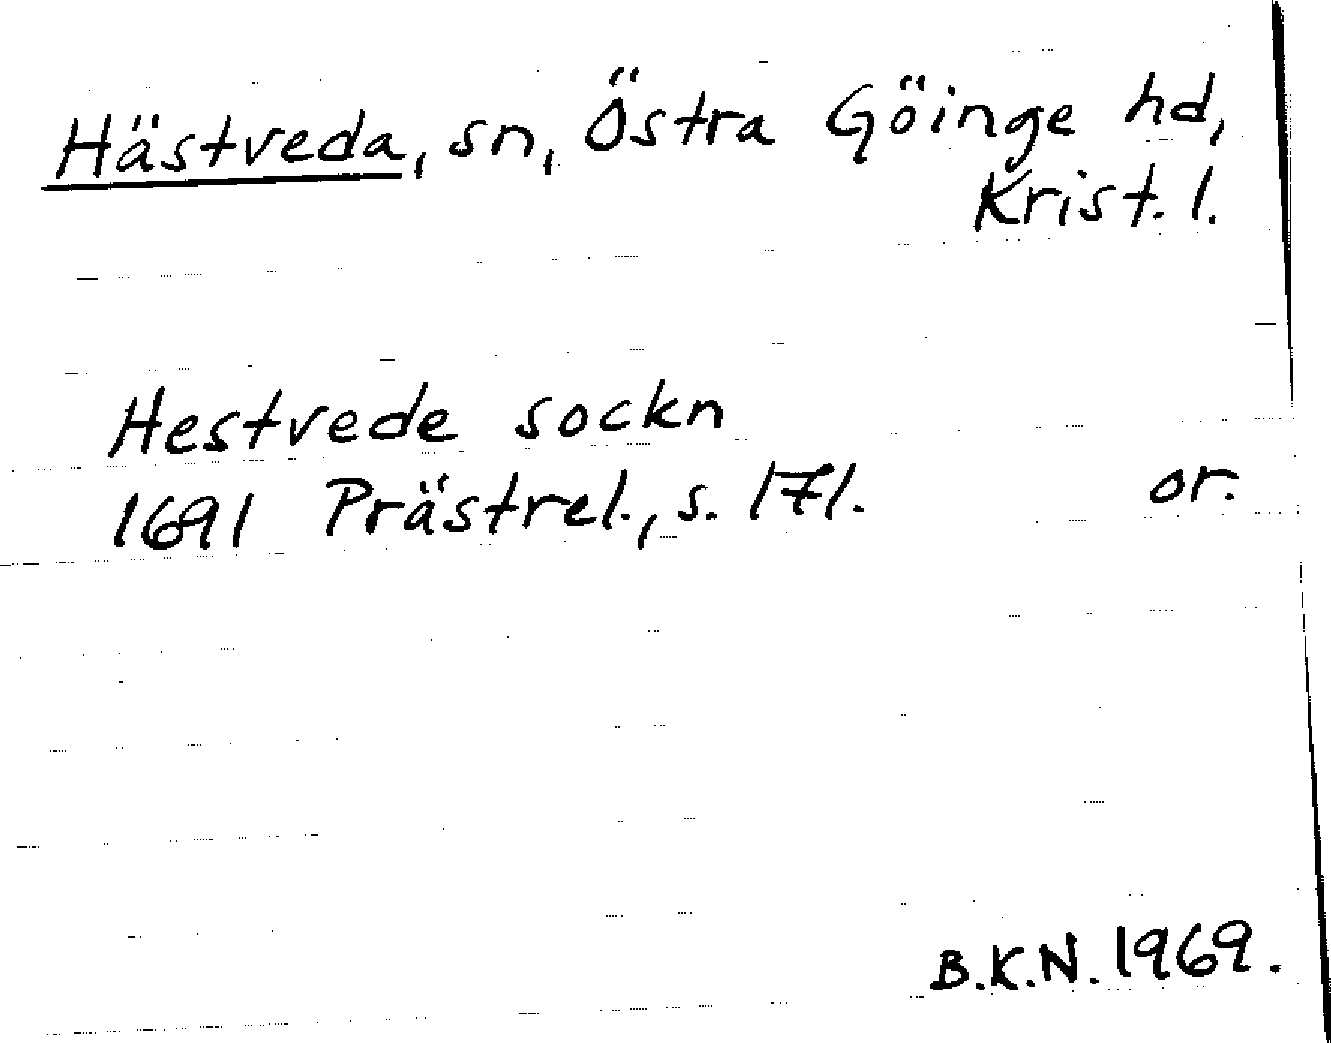 Hästveda, sn, Östra Göinge hd,
Krist. l.
Hestvede sockn
1691 Prästrel., s. 171. or.
B.K.N. 1969.